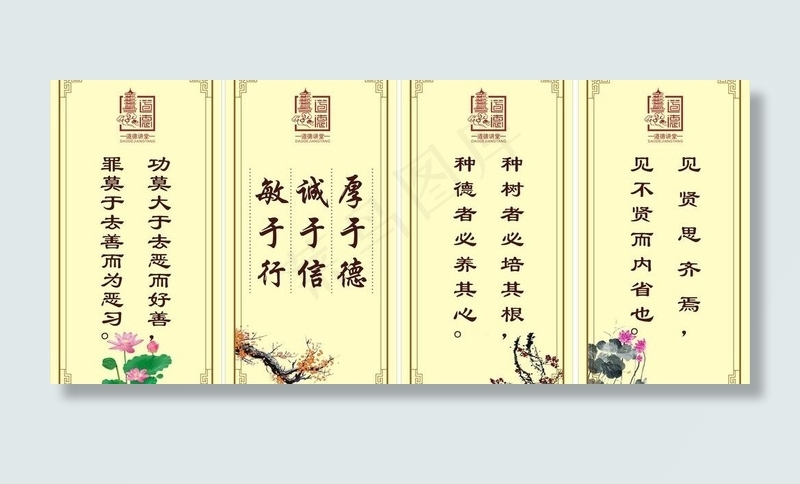 道德
—道德讲堂—
DAODEJIANGTANG
功莫大于去恶而好善，
罪莫于去善而为恶习。
道德
—道德讲堂—
DAODEJIANGTANG
厚于德
诚于信
敏于行
道德
—道德讲堂—
DAODEJIANGTANG
种树者必培其根，
种德者必养其心。
道德
—道德讲堂—
DAODEJIANGTANG
见贤思齐焉，
见不贤而内省也。